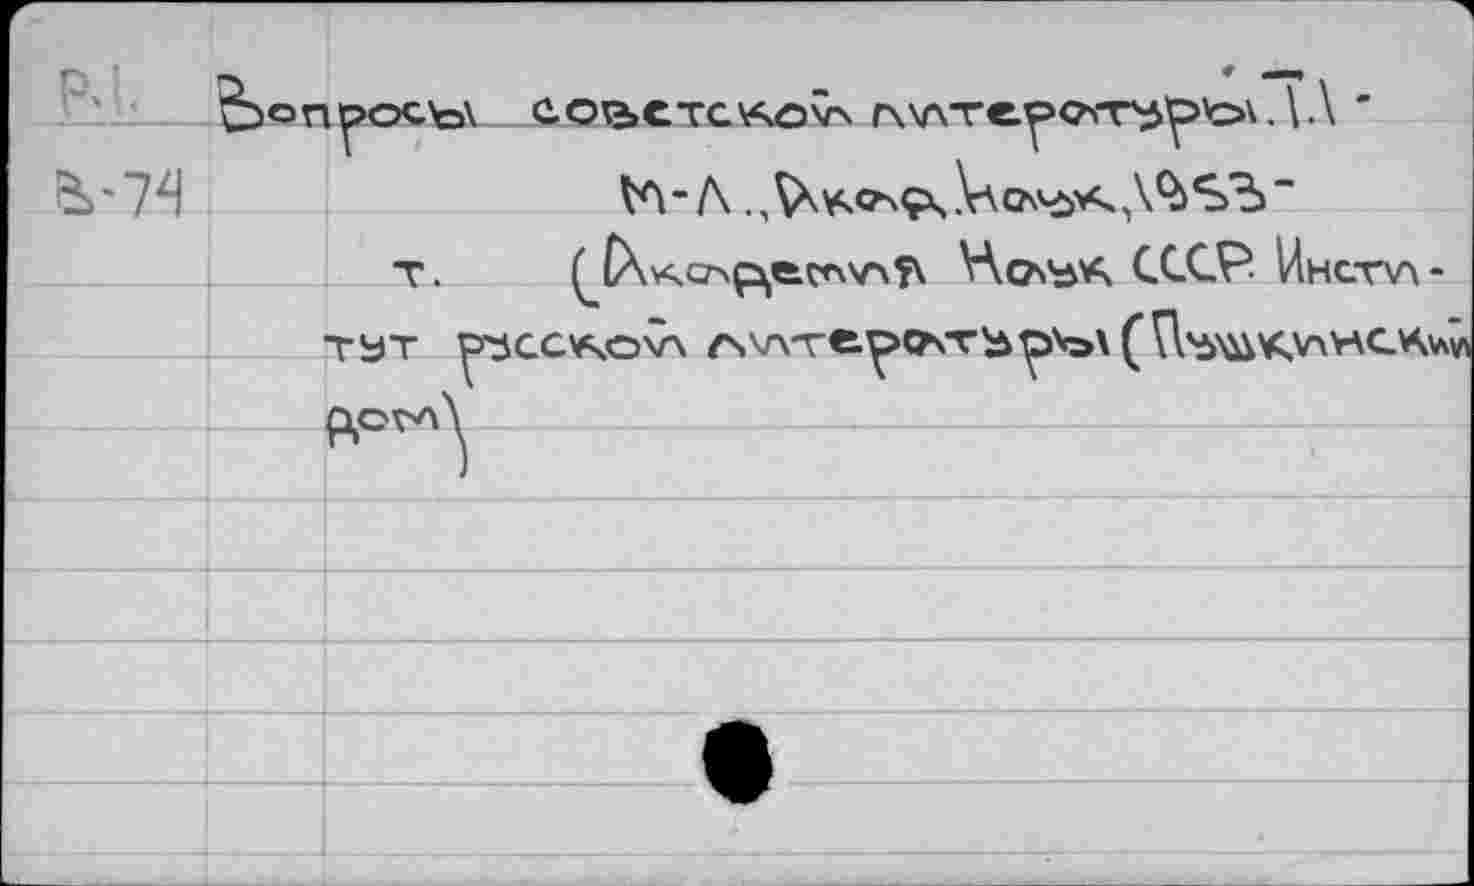 Р.I. Вопросы советской литературы. Т.1-
В-74 М-Л., Акад. Наук, 1953-
т. (Академия Наук СССР. Инсти-
тут русской литературы (Пушкинский
дом)